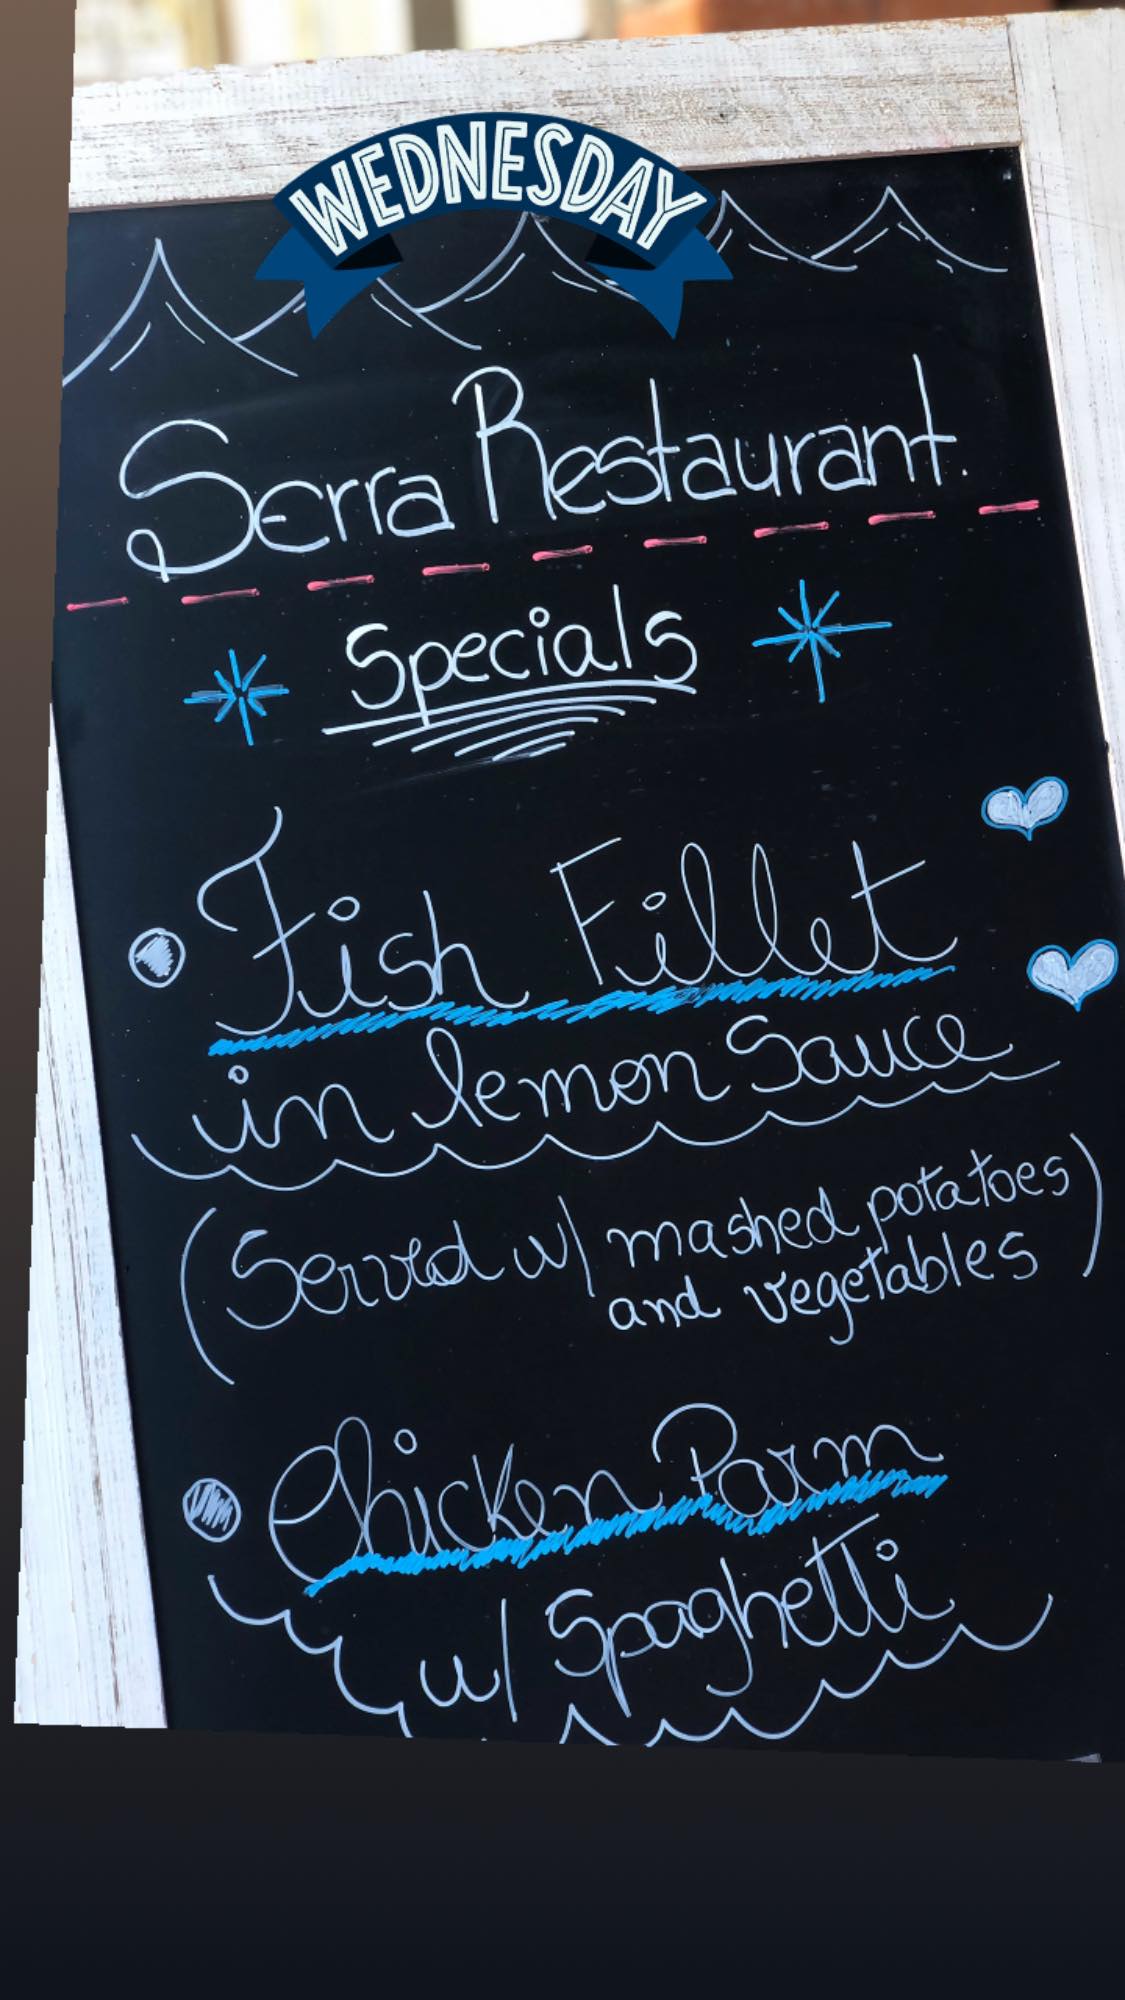 WEDNESDAY
Serra Restaurant.
Specials
Fish Fillet
in lemon Sauce
(Served w/ mashed potatoes
and vegetables)
Chicken Parm
w/ Spaghetti